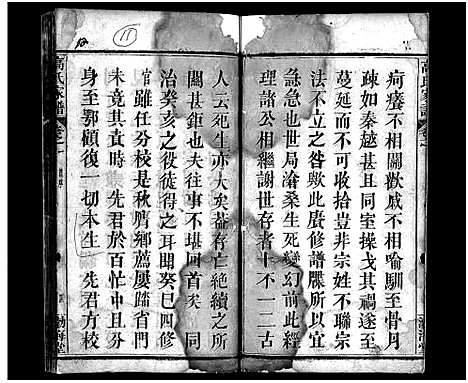 痾癢不相關歡戚不相喻馴至骨月
疎如秦越甚且同室操戈其禍遂至
蔓延而不可收拾豈非宗姓不聯宗
法不立之咎歟此賡修譜牒所以
急急也世局滄桑生死變幻前此經
理諸公相繼謝世存者十不一二古
高氏家譜
卷之一
渤海堂
人云死生亦大矣葢存亡絶續之所
關甚鉅也夫往事不堪回首矣 同
治癸亥之役徒得之耳聞癸巳四修
官雖任分校是秋膺鄉薦屢踏省門
未竟其責時 先君於百忙中且分
身至鄂顧復一切本生 先君方校
高氏家譜
卷之一
渤海堂
11